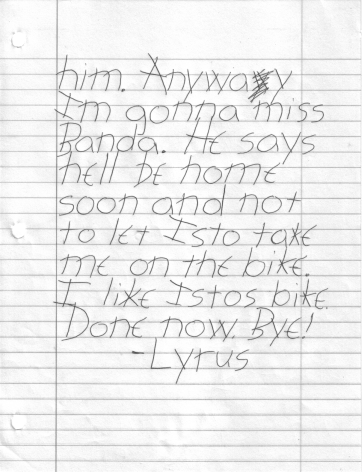 him. Anyway
I'm gonna miss
Banda. He says
hell be home
soon and not
to let Isto take
me on the bike.
I like Istos bike.
Done now. Bye!
-Lyrus